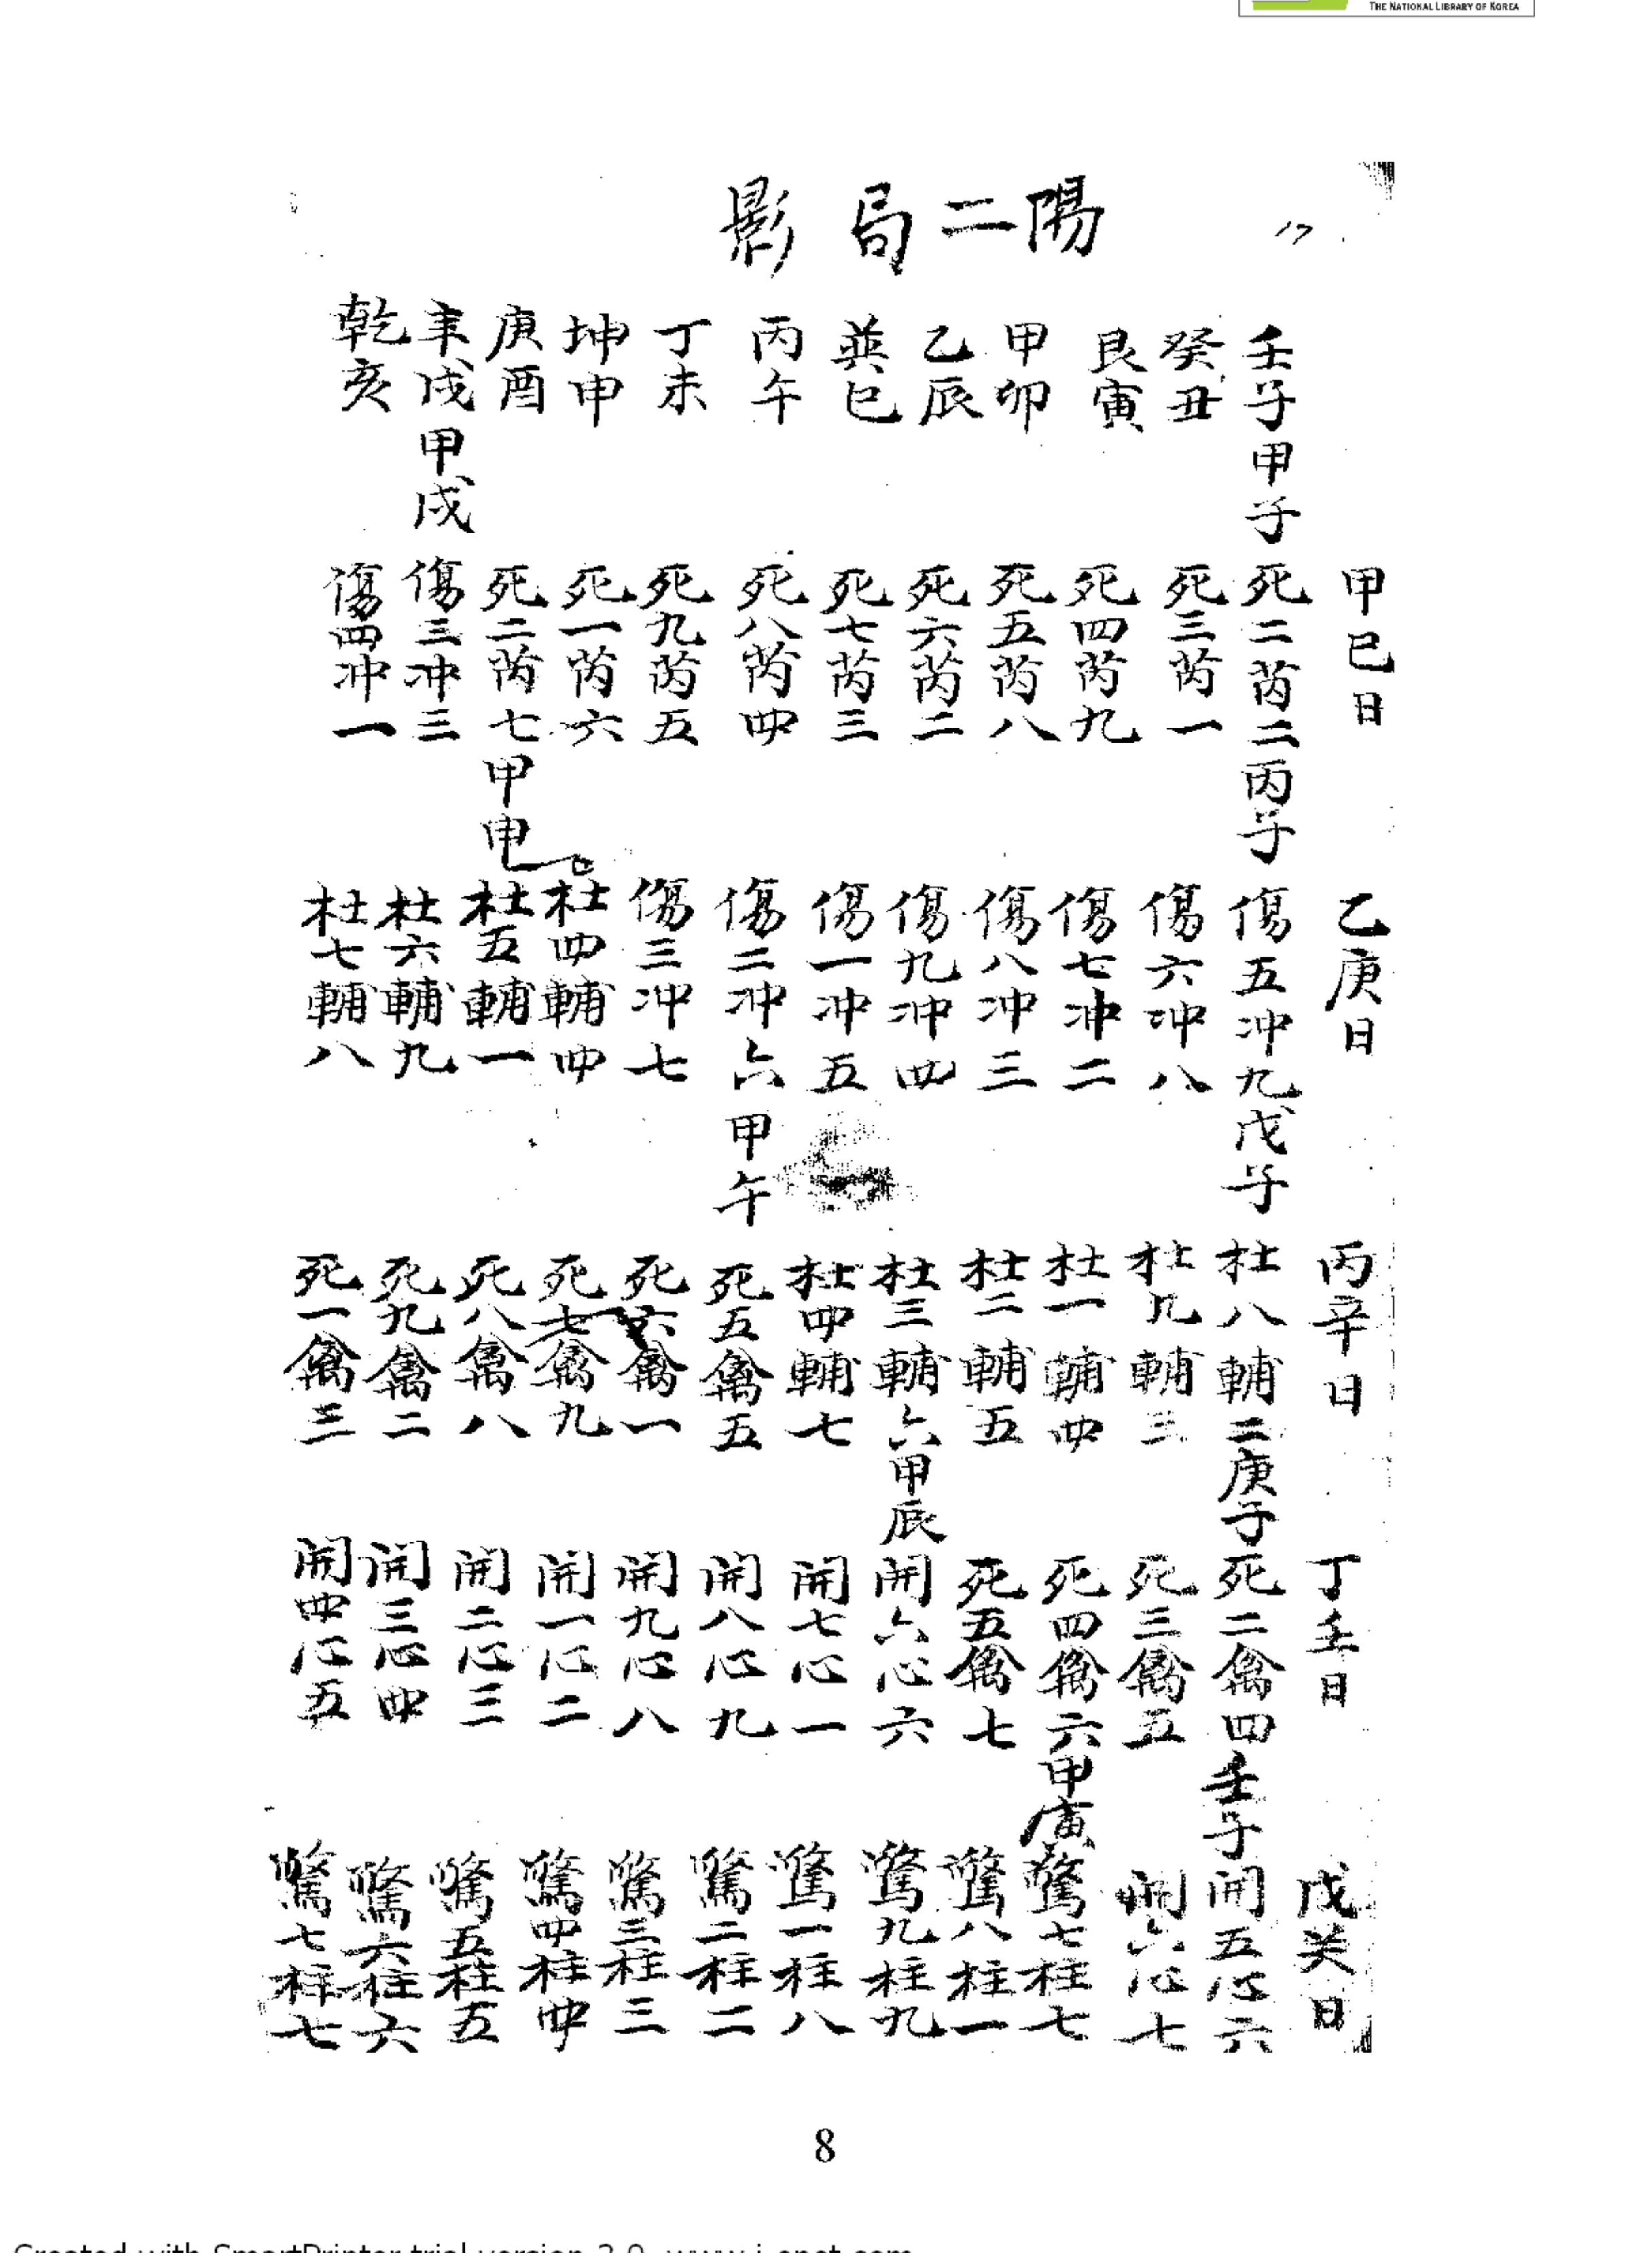 THE NATIONAL LIBRARY OF KOREA
17
陽二局影
甲己日 乙庚日 丙辛日 丁壬日 戊癸日
壬子甲子 死二芮二丙子 傷五冲九戊子 杜八輔二庚子 死二禽四壬子 開五心六
癸丑 死三芮一 傷六冲八 杜九輔三 死三禽五 開六心七
艮寅 死四芮九 傷七冲二 杜一輔四 死四禽六甲寅 驚七柱七
甲卯 死五芮八 傷八冲三 杜二輔五 死五禽七 驚八柱一
乙辰 死六芮二 傷九冲四 杜三輔六甲辰 開六心六 驚九柱九
巽巳 死七芮三 傷一冲五 杜四輔七 開七心一 驚一柱八
丙午 死八芮四 傷二冲六甲午 死五禽五 開八心九 驚二柱二
丁未 死九芮五 傷三冲七 死六禽一 開九心八 驚三柱三
坤申 死一芮六 杜四輔四 死七禽九 開一心二 驚四柱四
庚酉 死二芮七甲申 杜五輔一 死八禽八 開二心三 驚五柱五
辛戌甲戌 傷三冲三 杜六輔九 死九禽二 開三心四 驚六柱六
乾亥 傷四冲一 杜七輔八 死一禽三 開四心五 驚七柱七
8